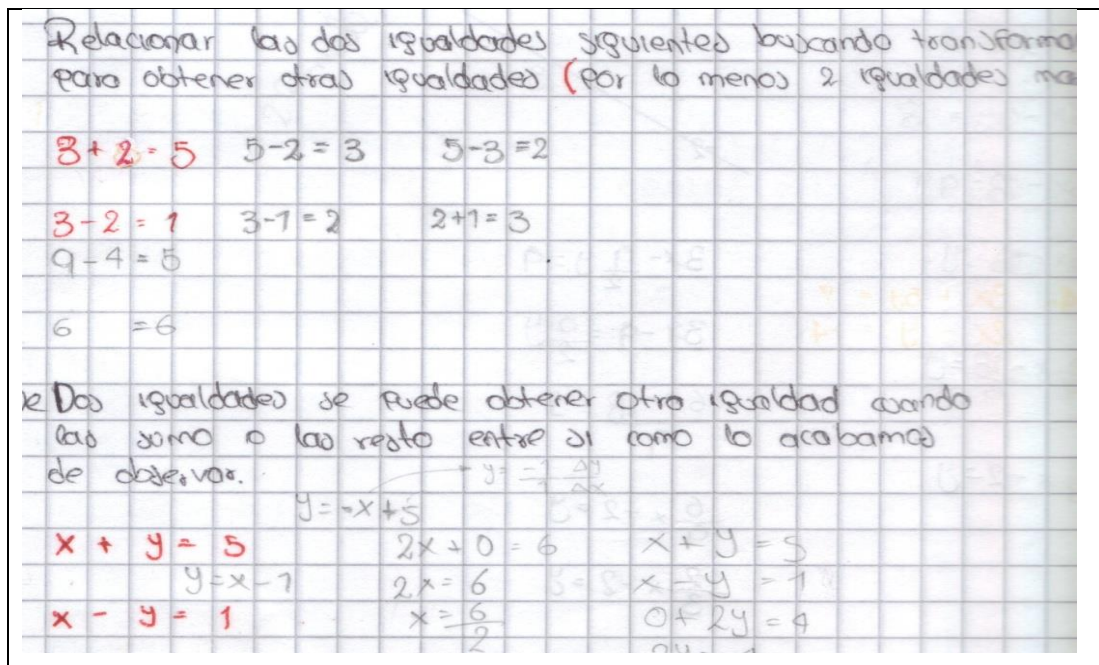 Relacionar las dos igualdades siguientes buscando transforma
para obtener otras igualdades (por lo menos 2 igualdades ma
3 + 2 = 5 5-2 = 3 5-3 = 2
3 - 2 = 1 3-1 = 2 2+1 = 3
9-4 = 5
6 = 6
e Dos igualdades se puede obtener otra igualdad cuando
las sumo o las resto entre si como lo acabamos
de observar.
y = -x+5
x + y = 5 2x + 0 = 6 x + y = 5
y = x - 1 2x = 6 x - y = 1
x - y = 1 x = 6/2 0 + 2y = 4